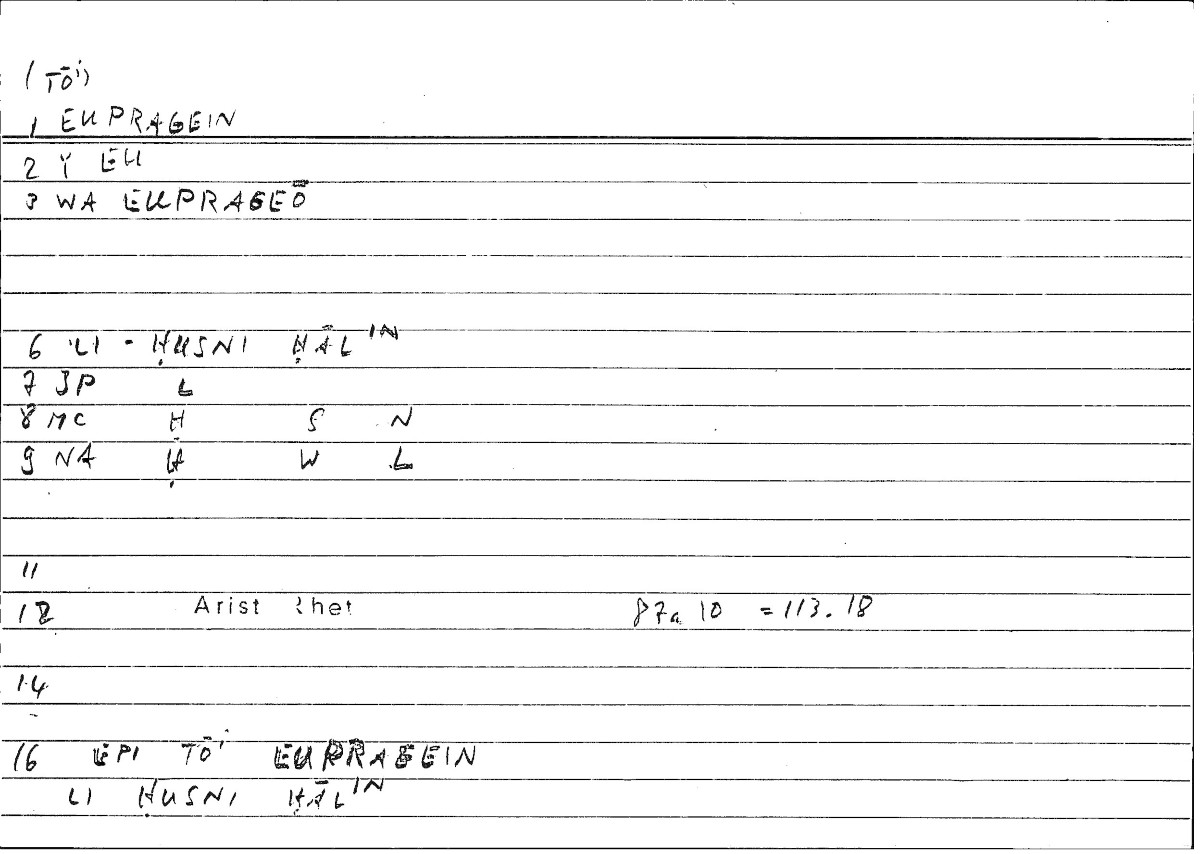 (TŌⁱ)
1 EUPRAGEIN
2 Y EU
3 WA EUPRAGEŌ
6 LI - ḤUSNI ḤĀL^IN
7 JP L
8 MC Ḥ S N
9 NA Ḥ W L
11
12 Arist Rhet 87a 10 = 113.18
14
16 EPI TŌⁱ EUPRAGEIN
LI ḤUSNI ḤĀL^IN